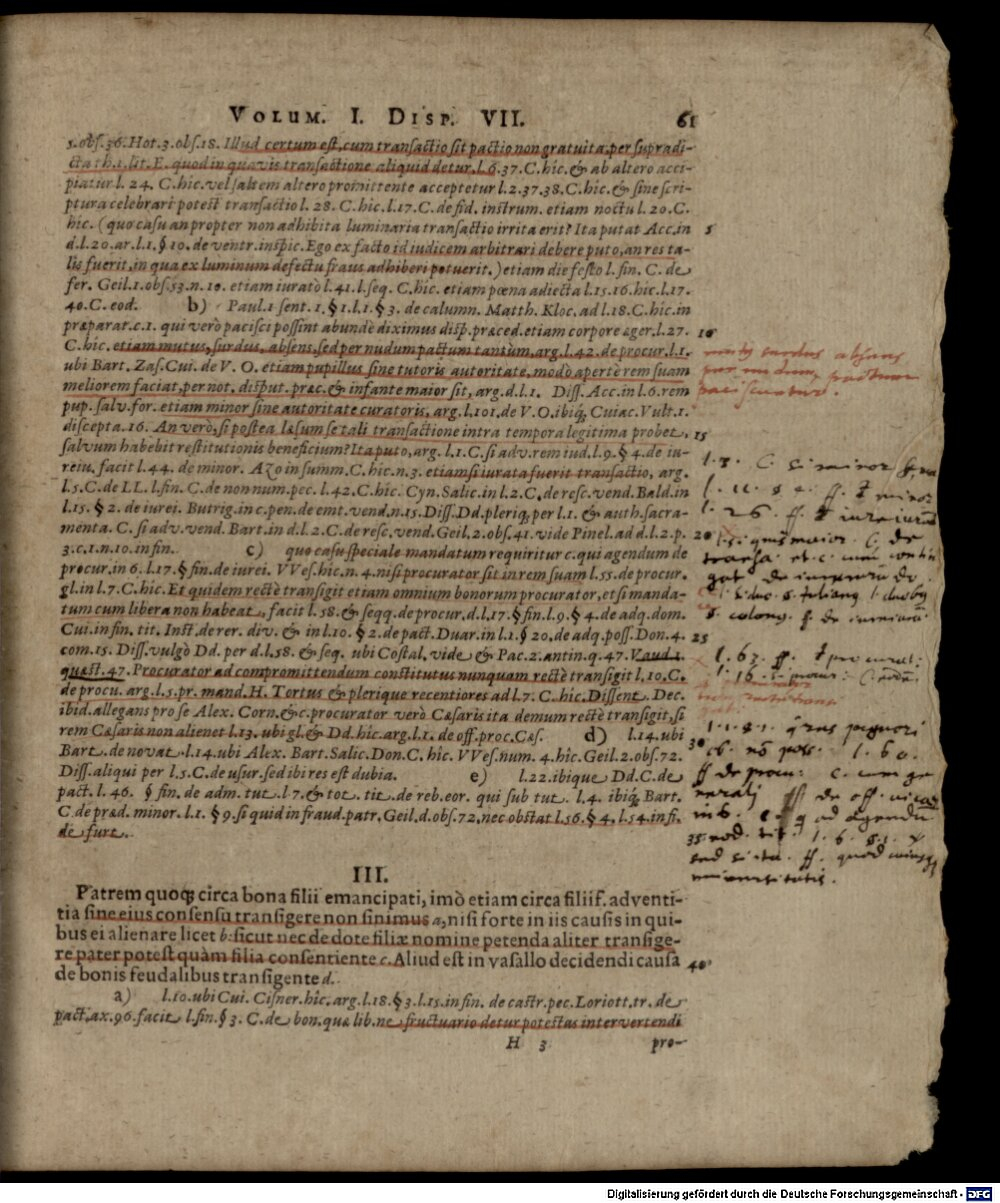 VOLUM. I. DISP. VII. 61
5.obs.36.Hot.3.obs.18. Illud certum est, cum transactio sit pactio non gratuita, per supradi-
cta th.1.lit.E. quod in quavis transactione aliquid detur, l.6.37.C.hîc.& ab altero acci-
piatur l. 24. C.hîc.vel saltem altero promittente acceptetur l.2.37.38.C.hîc.& sine scri-
ptura celebrari potest transactio l. 28. C. hîc. l.17. C. de fid. instrum. etiam noctu l. 20. C.
hîc. (quo casu an propter non adhibita luminaria transactio irrita erit? Ita putat Acc. in 5
d.l.20. ar.l.1. § 10. de ventr. inspic. Ego ex facto id iudicem arbitrari debere puto, an res ta-
lis fuerit, in qua ex luminum defectu fraus adhiberi potuerit.) etiam die festo l. fin. C. de
fer. Geil.1.obs.53.n.10. etiam iurato l.41.l.seq. C.hîc. etiam pœna adiecta l.15.16.hîc.l.17.
40.C.eod. b) Paul.1 sent. 1. § 1.l.1 § 3. de calumn. Matth. Kloc. ad l.18.C.hîc.in
præparat.c.1. qui verò pacisci possint abundè diximus disp. præced. etiam corpore æger. l.27. 10
C.hîc. etiam mutus, surdus, absens, sed per nudum pactum tantùm, arg. l.42. de procur. l.1.
ubi Bart. Zas. Cui. de V. O. etiam pupillus sine tutoris autoritate, modò apertè rem suam
meliorem faciat, per not. disput. præc. & infante maior sit, arg. d.l.1. Diss. Acc.in l.6.rem
pup. salv. for. etiam minor sine autoritate curatoris, arg. l.101. de V.O. ibiq; Cuiac. Vult.1.
discepta.16. An verò, si postea læsum se tali transactione intra tempora legitima probet, 15
salvum habebit restitutionis beneficium? Ita puto, arg. l.1. C. si adv. rem iud. l.9. § 4. de iu-
reiu. facit l.44. de minor. Azo in summ. C. hîc. n. 3. etiamsi iurata fuerit transactio, arg.
l.5.C.de LL. l. fin. C. de non num. pec. l.42. C. hîc. Cyn. Salic. in l.2.C.de resc. vend. Bald. in
l.15. § 2. de iurei. Butrig. in c. pen. de emt. vend. n.15. Diss. Dd. pleriq; per l.1. & auth. sacra-
menta. C. si adv. vend. Bart. in d.l.2.C.de resc. vend. Geil.2.obs.41. vide Pinel. ad d.l.2.p. 20
3.c.1.n.10. in fin. c) quo casu speciale mandatum requiritur c. qui agendum de
procur. in 6. l.17. § fin. de iurei. VVes.hîc.n.4. nisi procurator sit in rem suam l.55. de procur.
gl. in l.7. C. hîc. Et quidem rectè transigit etiam omnium bonorum procurator, etsi manda-
tum cum libera non habeat, facit l.58. & seqq. de procur. d.l.17. § fin. l.9. § 4. de adq. dom.
Cui. in fin. tit. Inst. de rer. div. & in l.10. § 2. de pact. Duar. in l.1. § 20. de adq. poss. Don. 4. 25
com.15. Diss. vulgò Dd. per d.l.58. & seq. ubi Costal. vide & Pac.2.antin.q.47. Vaud.1.
quæst.47. Procurator ad compromittendum constitutus nunquam rectè transigit l.10.C.
de procu. arg. l.5. pr. mand. H. Tortus & plerique recentiores ad l.7. C. hîc. Dissent. Dec.
ibid. allegans pro se Alex. Corn. &c. procurator verò Cæsaris ita demum rectè transigit, si
rem Cæsaris non alienet l.13. ubi gl. & Dd.hîc.arg.l.1. de off. proc. Cæs. d) l.14. ubi 30
Bart. de novat. l.14. ubi Alex. Bart. Salic. Don. C. hîc. VVes. num. 4. hîc. Geil.2.obs.72.
Diss. aliqui per l.5.C.de usur. sed ibi res est dubia. e) l.22. ibique Dd. C. de
pact. l. 46. § fin. de adm. tut. l.7. & tot. tit. de reb. eor. qui sub tut. l.4. ibiq; Bart.
C. de præd. minor. l.1. § 9. si quid in fraud. patr. Geil. d. obs.72. nec obstat l.56. § 4. l.54. in fi.
de furt. 35
III.
Patrem quoq; circa bona filii emancipati, imò etiam circa filii f. adventi-
tia sine eius consensu transigere non sinimus a, nisi forte in iis causis in qui-
bus ei alienare licet b: sicut nec de dote filiæ nomine petenda aliter transige-
re pater potest quàm filia consentiente c. Aliud est in vasallo decidendi causa 40
de bonis feudalibus transigente d.
a) l.10. ubi Cui. Cisner. hîc. arg. l.18. § 3. l.15. in fin. de castr. pec. Loriott. tr. de
pact. ax.96. facit l. fin. § 3. C. de bon. quæ lib. ne fructuario detur potestas intervertendi
H 3 pro-
Digitalisierung gefördert durch die Deutsche Forschungsgemeinschaft - DFG